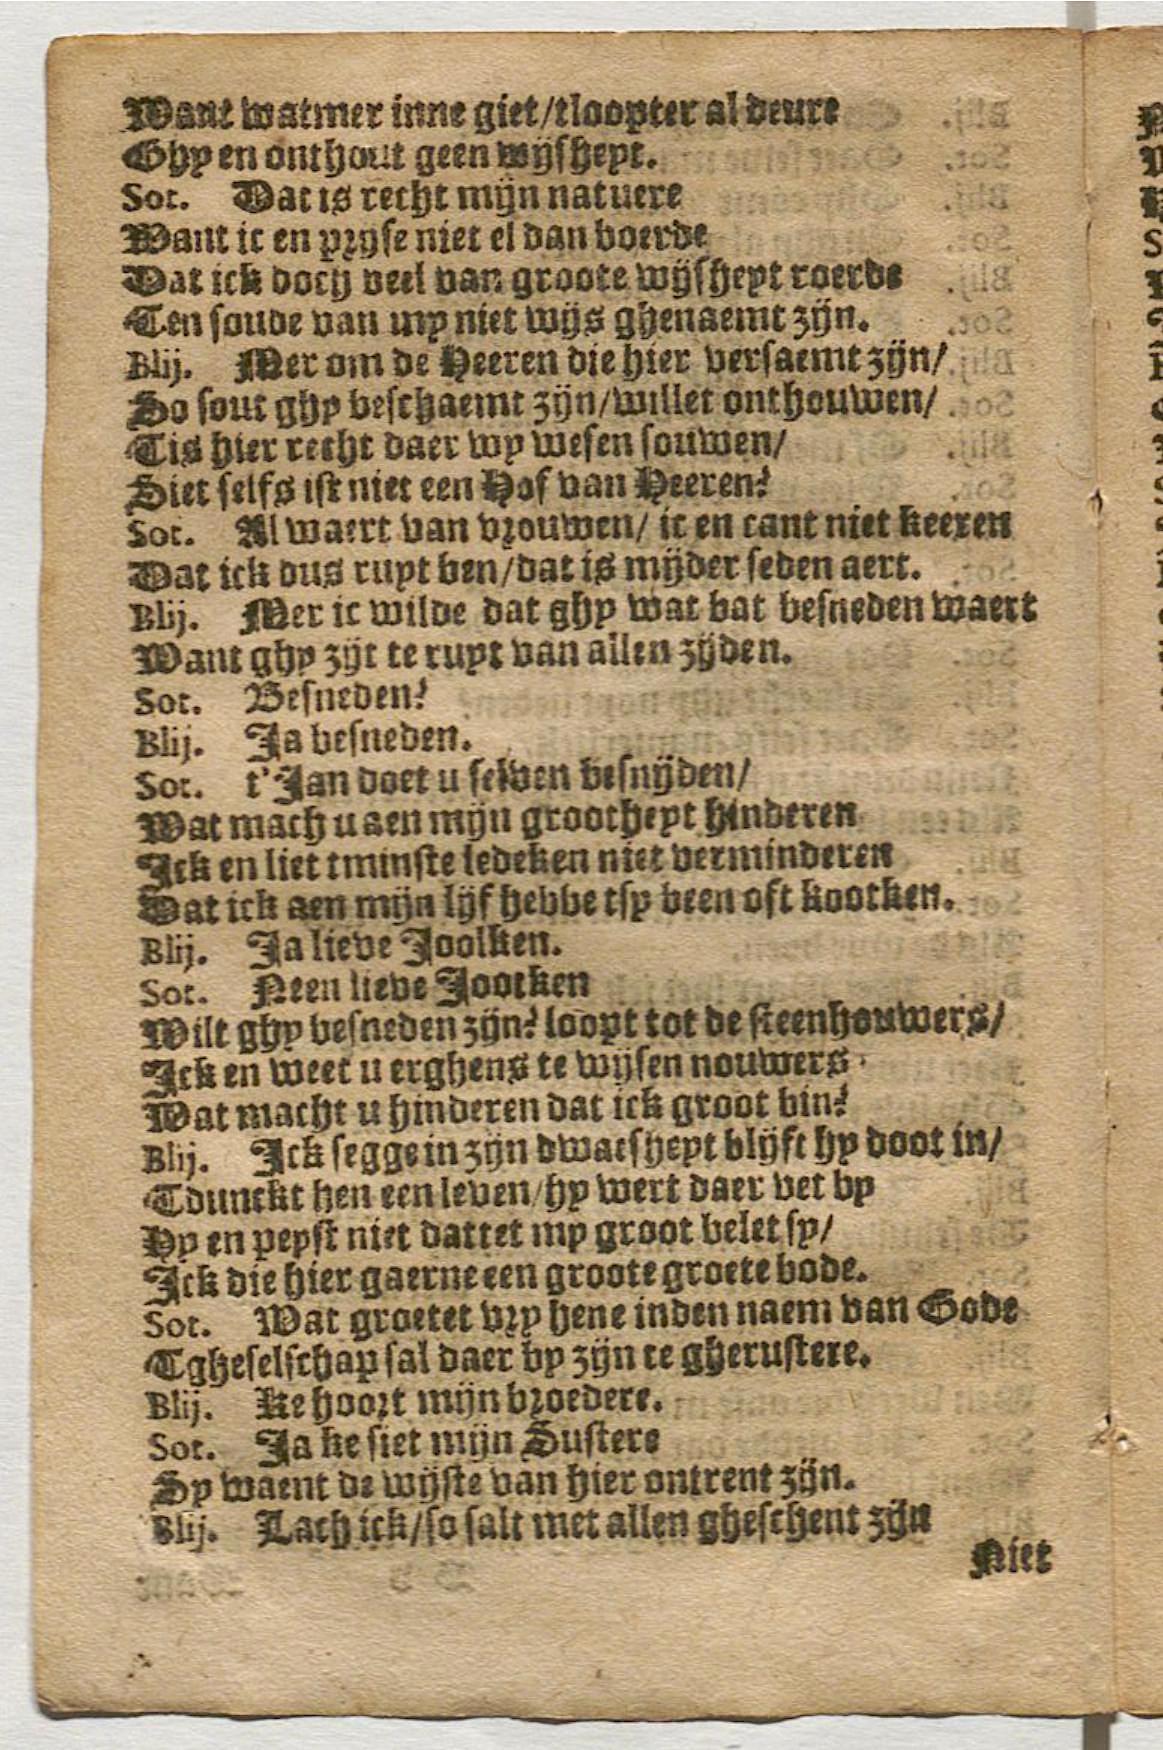 Want watmer inne giet/tloopter al deure
Ghy en onthout geen wijsheyt.
Sot. Dat is recht mijn natuere
Want ic en pryse niet el dan boerde
Dat ick doch veel van groote wijsheyt roerde
Ten soude van my niet wijs ghenaemt zijn.
Blij. Mer om de Heeren die hier versaemt zijn/
So sout ghy beschaemt zijn/willet onthouwen/
Tis hier recht daer wy wesen souwen/
Siet selfs ist niet een Hof van Heeren?
Sot. Al waert van vrouwen/ ic en cant niet keeren
Dat ick dus ruyt ben/dat is mijder seden aert.
Blij. Mer ic wilde dat ghy wat bat besneden waert
Want ghy zijt te ruyt van allen zijden.
Sot. Besneden?
Blij. Ja besneden.
Sot. t'Jan doet u selven besnijden/
Wat mach u aen mijn grootheyt hinderen
Ick en liet tminste ledeken niet verminderen
Dat ick aen mijn lijf hebbe tsy been oft kootken.
Blij. Ja lieve Joolken.
Sot. Neen lieve Jootken
Wilt ghy besneden zijn? loopt tot de steenhouwers/
Ick en weet u erghens te wijsen nouwers
Wat macht u hinderen dat ick groot bin?
Blij. Ick segge in zijn dwaesheyt blijft hy doot in/
Tdunckt hen een leven/hy wert daer vet by
Hy en peyst niet dattet my groot belet sy/
Ick die hier gaerne een groote groete bode.
Sot. Wat groetet vry hene inden naem van Gode
Tgheselschap sal daer by zijn te gherustere.
Blij. Ke hoort mijn broedere.
Sot. Ja ke siet mijn Sustere
Sy waent de wijste van hier ontrent zijn.
Blij. Lach ick/so salt met allen gheschent zijn
Niet